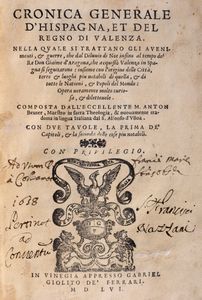 CRONICA GENERALE
D'HISPAGNA, ET DEL
REGNO DI VALENZA.
NELLA QUALE SI TRATTANO GLI AVENI-
menti, & guerre, che dal Diluuio di Noe insino al tempo del
Re Don Giaime d'Aragona, che acquistò Valenza in Spa-
gna si seguitarono: insieme con l'origine delle Città,
terre & luoghi piu notabili di quella, & di
tutte le Nationi, & Popoli del Mondo:
Opera ueramente molto curio-
sa, & diletteuole.
COMPOSTA DALL'ECCELLENTE M. ANTON
Beuter, Maestro in sacra Theologia, & nuouamente tra-
dotta in lingua Italiana dal S. Alfonso d'Vlloa.
CON DUE TAVOLE, LA PRIMA DE'
Capitoli, & la seconda delle cose piu notabili.
CON PRIVILEGIO.
1638
IN VINEGIA APPRESSO GABRIEL
GIOLITO DE' FERRARI.
M D LVI.